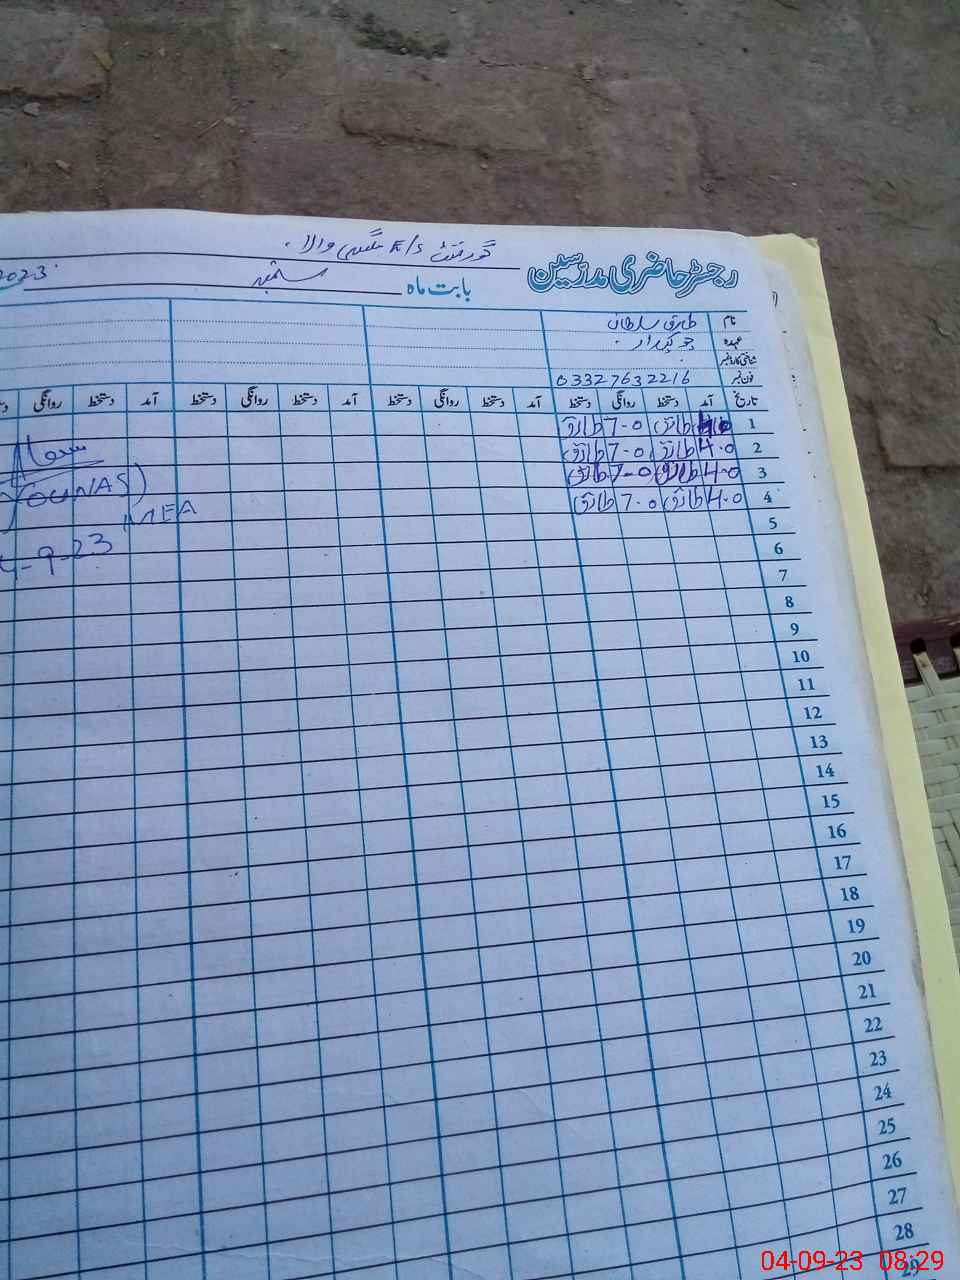 گورنمنٹ E/S والا
رجسٹر حاضری مدرسین
بابت ماہ ستمبر 2023
نام طارق سلطان
عہدہ چوکیدار
شناختی کارڈ نمبر
فون نمبر 03327632216
تاریخ آمد دستخط روانگی دستخط آمد دستخط روانگی دستخط آمد دستخط روانگی دستخط آمد دستخط روانگی
1 طارق 7-0 طارق
2 4-0 طارق 7-0 طارق
3 4-0 طارق 7-0 طارق
4 4-0 طارق 7-0 طارق
(YOUNAS)
MEA
4-9-23
5
6
7
8
9
10
11
12
13
14
15
16
17
18
19
20
21
22
23
24
25
26
27
28
29
04-09-23 08:29